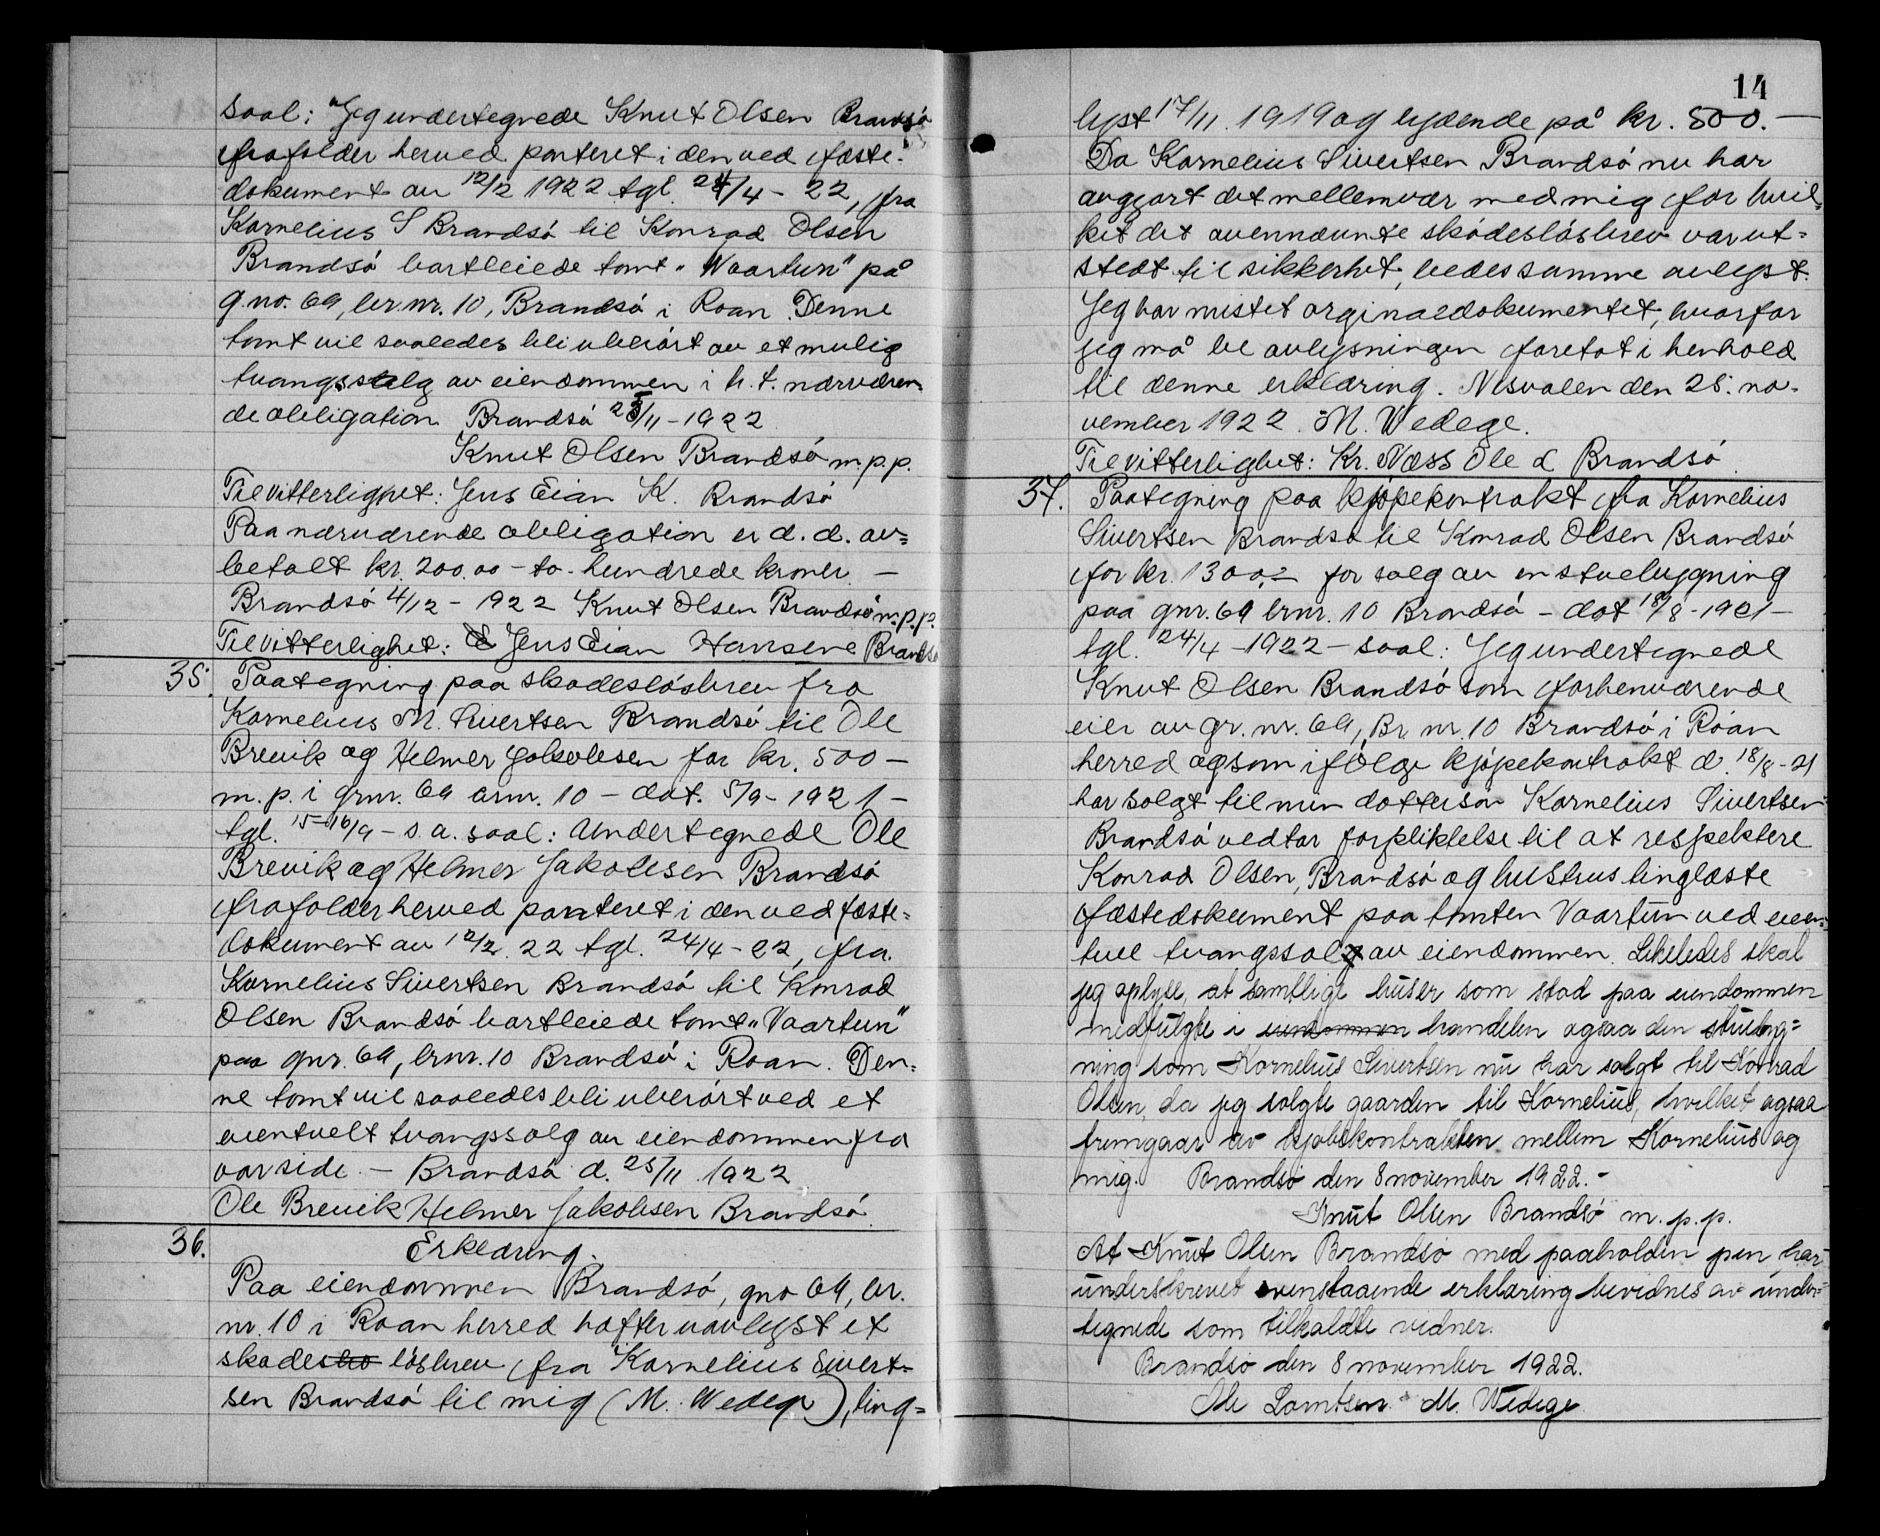 saal: "Jeg undertegnede Knut Olsen Brandsø
frafolder herved panteret i den ved fæste-
dokument av 12/2 1922 tgl. 24/4 - 22, fra
Kornelius S Brandsø til Konrad Olsen
Brandsø bortleiede tomt "Vaartun" på
g.no. 69, br.nr. 10, Brandsø i Roan. Denne
tomt vil saaledes bli uberørt av et mulig
tvangssalg av eiendommen i h. t. nærværen-
de obligation Brandsø 25/11 - 1922
Knut Olsen Brandsø m.p.p.
Til vitterlighet: Jens Eian K. Brandsø
Paa nærværende obligation er d. d. av=
betalt kr. 200.00 - to - hundrede kroner. -
Brandsø 4/12 - 1922 Knut Olsen Brandsø m.p.p.
Til vitterlighet: Jens Eian Hansine Brandsø
35. Paategning paa skadesløsbrev fra
Kornelius M. Sivertsen Brandsø til Ole
Brevik og Helmer Jakobsen for kr. 500 -
m. p. i grnr. 69 brnr. 10 - dat. 5/9 - 1921 -
tgl. 15-16/9 - s. a. saal: Undertegnede Ole
Brevik og Helmer Jakobsen Brandsø
frafolder herved panteret i den ved fæste=
dokument av 12/2. 22 tgl. 24/4 - 22, fra
Kornelius Sivertsen Brandsø til Konrad
Olsen Brandsø bortleiede tomt "Vaartun"
paa gnr. 69, brnr. 10 Brandsø i Roan. Den=
ne tomt vil saaledes bli uberørt ved et
eventuelt tvangssalg av eiendommen fra
vor side. - Brandsø d. 25/11 1922
Ole Brevik Helmer Jakobsen Brandsø.
36. Erklæring.
Paa eiendommen Brandsø, gno 69, br.
nr. 10 i Roan herred hafter uavlyst et
skadesløsbrev fra Kornelius Sivert=
sen Brandsø til mig (M. Wedege), ting=
14
lyst 17/11. 1919 og lydende på kr. 500. -
Da Kornelius Sivertsen Brandsø nu har
avgjort det mellemvær med mig for hvil=
ket det avennævnte skadesløsbrev var ut=
stedt til sikkerhet, bedes samme avlyst.
Jeg har mistet orginaldokumentet, hvorfor
jeg må be avlysningen foretat i henhold
til denne erklæring. Nesvalen den 25. no-
vember 1922. M. Wedege.
Til vitterlighet: Kr. Næss Ole L Brandsø.
37. Paategning paa kjøpekontrakt fra Kornelius
Sivertsen Brandsø til Konrad Olsen Brandsø
for kr. 1300.- for salg av en stuebygning
paa gnr. 69 brnr. 10 Brandsø - dat 18/8 - 1921 -
tgl. 24/4 - 1922 - saal: Jeg undertegnede
Knut Olsen Brandsø som forhenværende
eier av gr. nr. 69, Br. nr. 10 Brandsø i Roan
herred og som ifølge kjøpekontrakt d. 18/8 - 21
har solgt til min dotterson Kornelius Sivertsen
Brandsø vedtar forpliktelse til at respektere
Konrad Olsen, Brandsø og hustrus tinglæste
fæstedokument paa tomten Vaartun ved even=
tuel tvangssalg av eiendommen. Likeledes skal
jeg oplyse, at samtlige huser som stod paa eiendommen
medfulgte i eiendommen handelen ogsaa den stuebyg=
ning som Kornelius Sivertsen nu har solgt til Konrad
Olsen, da jeg solgte gaarden til Kornelius, hvilket ogsaa
fremgaar av kjøbekontrakten mellem Kornelius og
mig. Brandsø den 8 november 1922. -
Knut Olsen Brandsø m. p. p.
At Knut Olsen Brandsø med paaholden pen har
underskrevet ovenstaaende erklæring bevidnes av under=
tegnede som tilkaldte vidner.
Brandsø den 8 november 1922.
Ole Lorntsen. M. Wedege